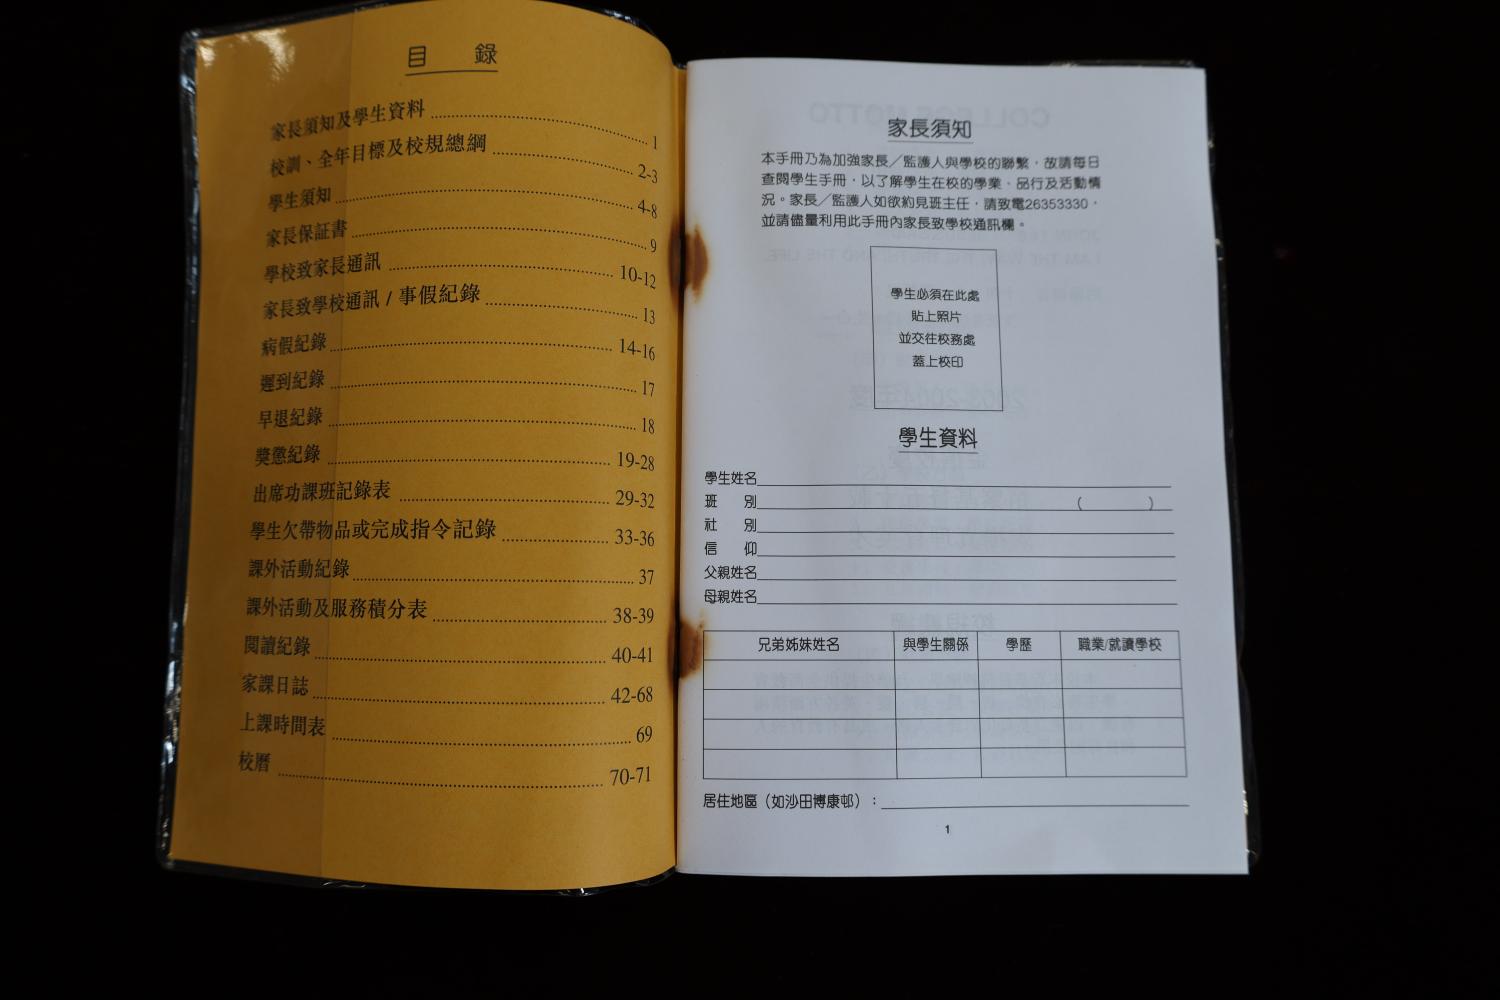 目　錄
家長須知及學生資料 1
校訓、全年目標及校規總綱 2-3
學生須知 4-8
家長保証書 9
學校致家長通訊 10-12
家長致學校通訊 / 事假紀錄 13
病假紀錄 14-16
遲到紀錄 17
早退紀錄 18
獎懲紀錄 19-28
出席功課班記錄表 29-32
學生欠帶物品或完成指令記錄 33-36
課外活動紀錄 37
課外活動及服務積分表 38-39
閱讀紀錄 40-41
家課日誌 42-68
上課時間表 69
校曆 70-71
家長須知
本手冊乃為加強家長／監護人與學校的聯繫，故請每日
查閱學生手冊，以了解學生在校的學業、品行及活動情
況。家長／監護人如欲約見班主任，請致電26353330，
並請儘量利用此手冊內家長致學校通訊欄。
學生必須在此處
貼上照片
並交往校務處
蓋上校印
學生資料
學生姓名
班　別 (　　)
社　別
信　仰
父親姓名
母親姓名
兄弟姊妹姓名 與學生關係 學歷 職業/就讀學校
居住地區（如沙田博康邨）：
1